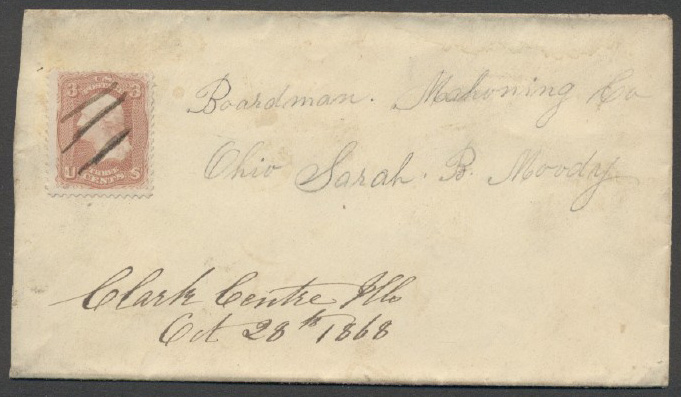 U.S.
POSTAGE
3 3
U S
THREE
CENTS
Boardman. Mahoning Co
Ohio Sarah. B. Moody
Clark Centre Ills
Oct 28th 1868